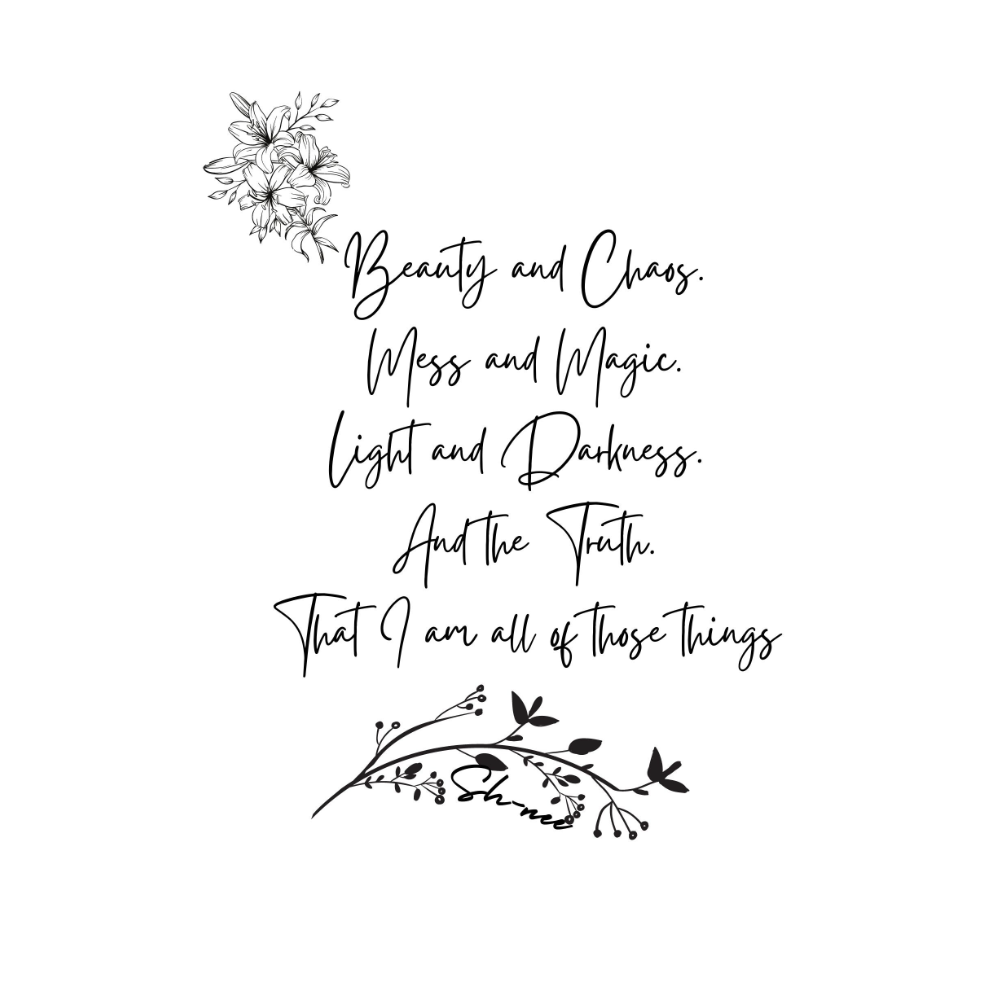 Beauty and Chaos.
Mess and Magic.
Light and Darkness.
And the Truth.
That I am all of those things
Sh-nee